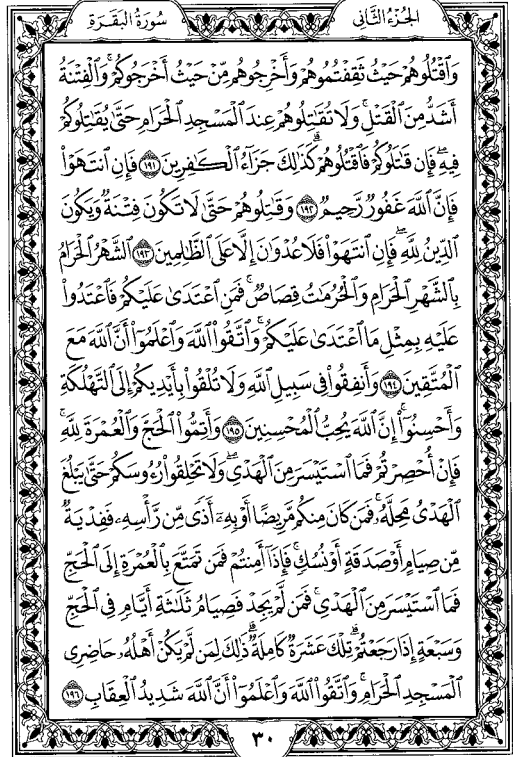 الجزء الثاني
سورة البقرة
وَٱقۡتُلُوهُمۡ حَيۡثُ ثَقِفۡتُمُوهُمۡ وَأَخۡرِجُوهُم مِّنۡ حَيۡثُ أَخۡرَجُوكُمۡۚ وَٱلۡفِتۡنَةُ
أَشَدُّ مِنَ ٱلۡقَتۡلِۚ وَلَا تُقَٰتِلُوهُمۡ عِندَ ٱلۡمَسۡجِدِ ٱلۡحَرَامِ حَتَّىٰ يُقَٰتِلُوكُمۡ
فِيهِۖ فَإِن قَٰتَلُوكُمۡ فَٱقۡتُلُوهُمۡۗ كَذَٰلِكَ جَزَآءُ ٱلۡكَٰفِرِينَ ١٩١ فَإِنِ ٱنتَهَوۡاْ
فَإِنَّ ٱللَّهَ غَفُورٞ رَّحِيمٞ ١٩٢ وَقَٰتِلُوهُمۡ حَتَّىٰ لَا تَكُونَ فِتۡنَةٞ وَيَكُونَ
ٱلدِّينُ لِلَّهِۖ فَإِنِ ٱنتَهَوۡاْ فَلَا عُدۡوَٰنَ إِلَّا عَلَى ٱلظَّٰلِمِينَ ١٩٣ ٱلشَّهۡرُ ٱلۡحَرَامُ
بِٱلشَّهۡرِ ٱلۡحَرَامِ وَٱلۡحُرُمَٰتُ قِصَاصٞۚ فَمَنِ ٱعۡتَدَىٰ عَلَيۡكُمۡ فَٱعۡتَدُواْ
عَلَيۡهِ بِمِثۡلِ مَا ٱعۡتَدَىٰ عَلَيۡكُمۡۚ وَٱتَّقُواْ ٱللَّهَ وَٱعۡلَمُوٓاْ أَنَّ ٱللَّهَ مَعَ
ٱلۡمُتَّقِينَ ١٩٤ وَأَنفِقُواْ فِي سَبِيلِ ٱللَّهِ وَلَا تُلۡقُواْ بِأَيۡدِيكُمۡ إِلَى ٱلتَّهۡلُكَةِ
وَأَحۡسِنُوٓاْۚ إِنَّ ٱللَّهَ يُحِبُّ ٱلۡمُحۡسِنِينَ ١٩٥ وَأَتِمُّواْ ٱلۡحَجَّ وَٱلۡعُمۡرَةَ لِلَّهِۚ
فَإِنۡ أُحۡصِرۡتُمۡ فَمَا ٱسۡتَيۡسَرَ مِنَ ٱلۡهَدۡيِۖ وَلَا تَحۡلِقُواْ رُءُوسَكُمۡ حَتَّىٰ يَبۡلُغَ
ٱلۡهَدۡيُ مَحِلَّهُۥۚ فَمَن كَانَ مِنكُم مَّرِيضًا أَوۡ بِهِۦٓ أَذٗى مِّن رَّأۡسِهِۦ فَفِدۡيَةٞ
مِّن صِيَامٍ أَوۡ صَدَقَةٍ أَوۡ نُسُكٖۚ فَإِذَآ أَمِنتُمۡ فَمَن تَمَتَّعَ بِٱلۡعُمۡرَةِ إِلَى ٱلۡحَجِّ
فَمَا ٱسۡتَيۡسَرَ مِنَ ٱلۡهَدۡيِۚ فَمَن لَّمۡ يَجِدۡ فَصِيَامُ ثَلَٰثَةِ أَيَّامٖ فِي ٱلۡحَجِّ
وَسَبۡعَةٍ إِذَا رَجَعۡتُمۡۗ تِلۡكَ عَشَرَةٞ كَامِلَةٞۗ ذَٰلِكَ لِمَن لَّمۡ يَكُنۡ أَهۡلُهُۥ حَاضِرِي
ٱلۡمَسۡجِدِ ٱلۡحَرَامِۚ وَٱتَّقُواْ ٱللَّهَ وَٱعۡلَمُوٓاْ أَنَّ ٱللَّهَ شَدِيدُ ٱلۡعِقَابِ ١٩٦
٣٠